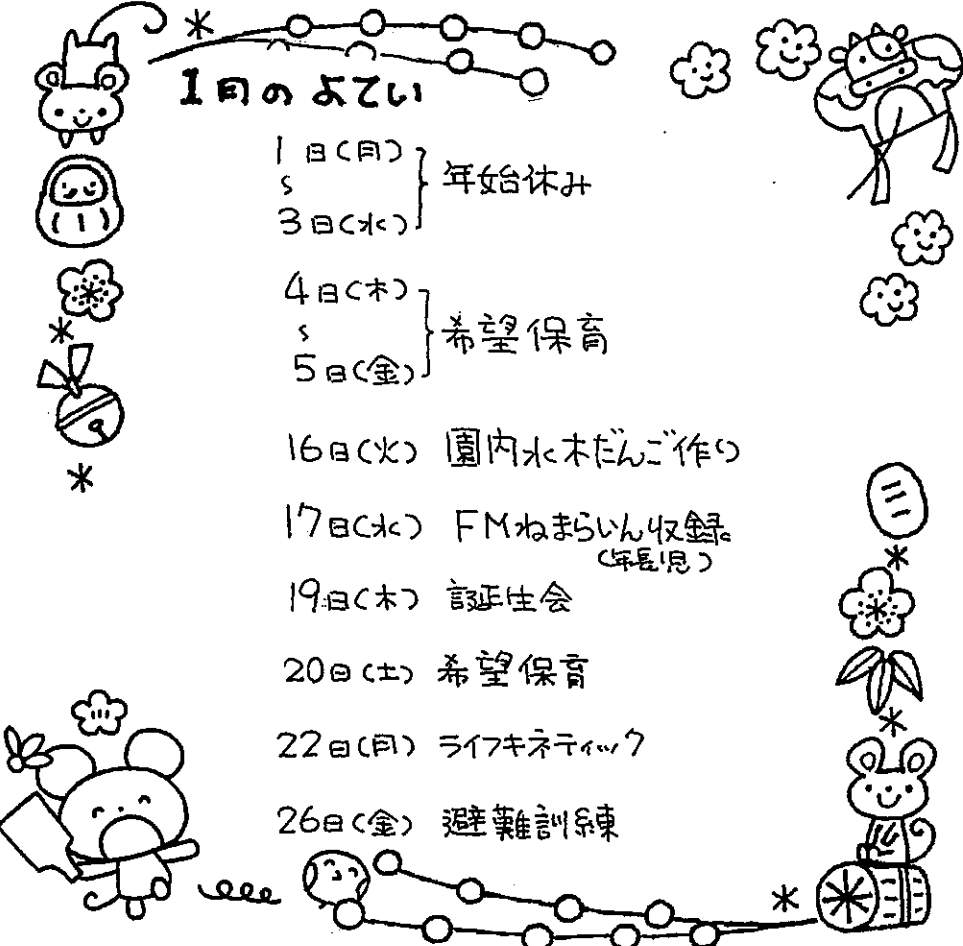 1月のよてい
1日(月)
〜
3日(水)
年始休み
4日(木)
〜
5日(金)
希望保育
16日(火) 園内水木だんご作り
17日(水) FMねまらいん収録
(年長児)
19日(木) 誕生会
20日(土) 希望保育
22日(月) ライフキネティック
26日(金) 避難訓練